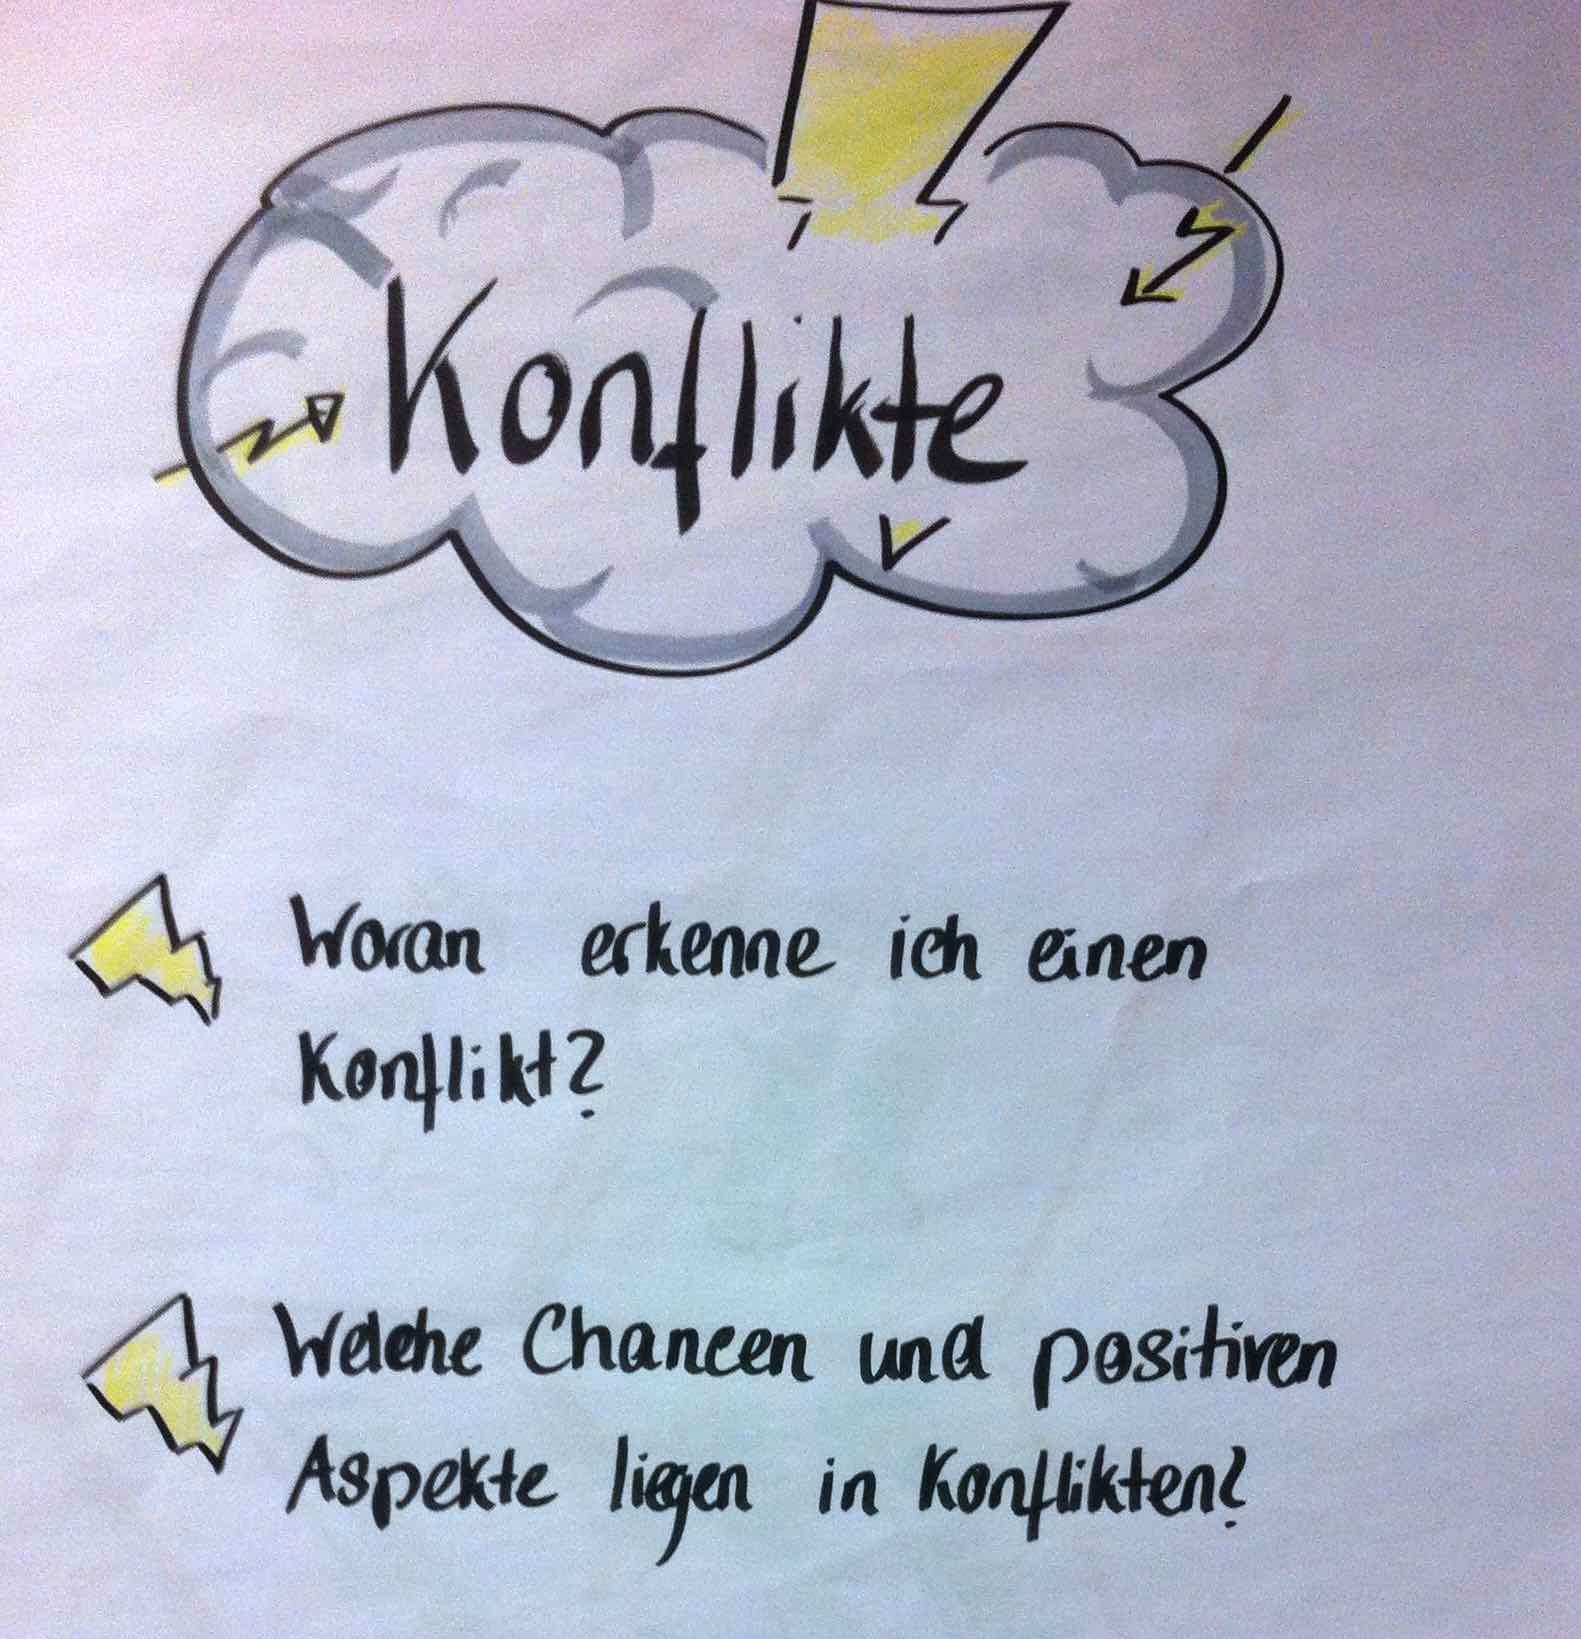 Konflikte
Woran erkenne ich einen
Konflikt?
Welche Chancen und positiven
Aspekte liegen in Konflikten?